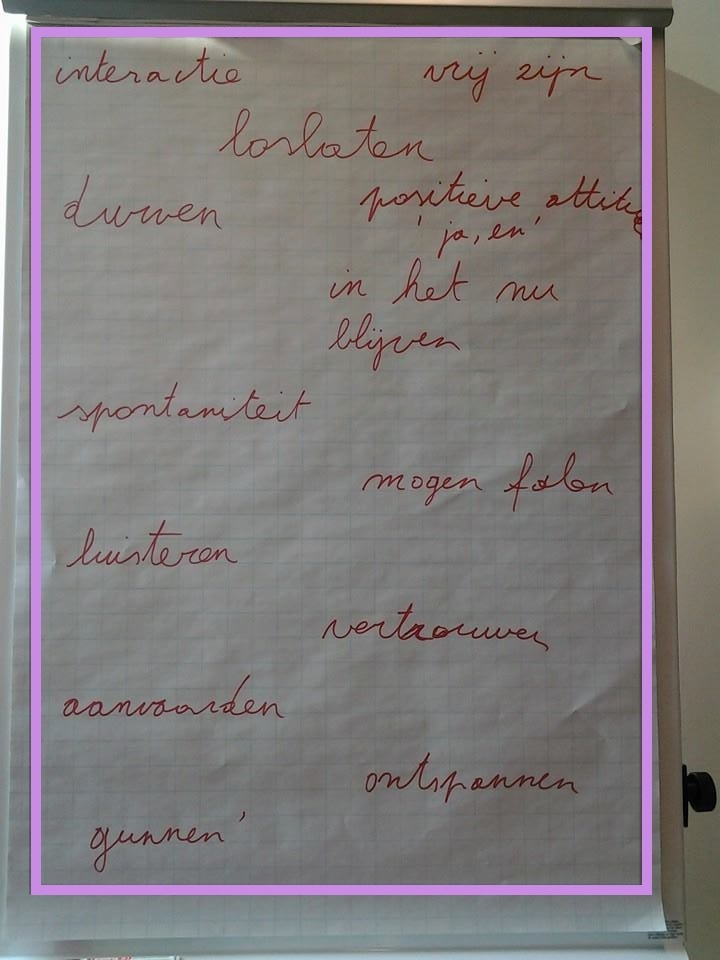 interactie
vrij zijn
loslaten
durven
positieve attitude
'ja, en'
in het nu
blijven
spontaniteit
mogen falen
luisteren
vertrouwen
aanvaarden
ontspannen
gunnen'